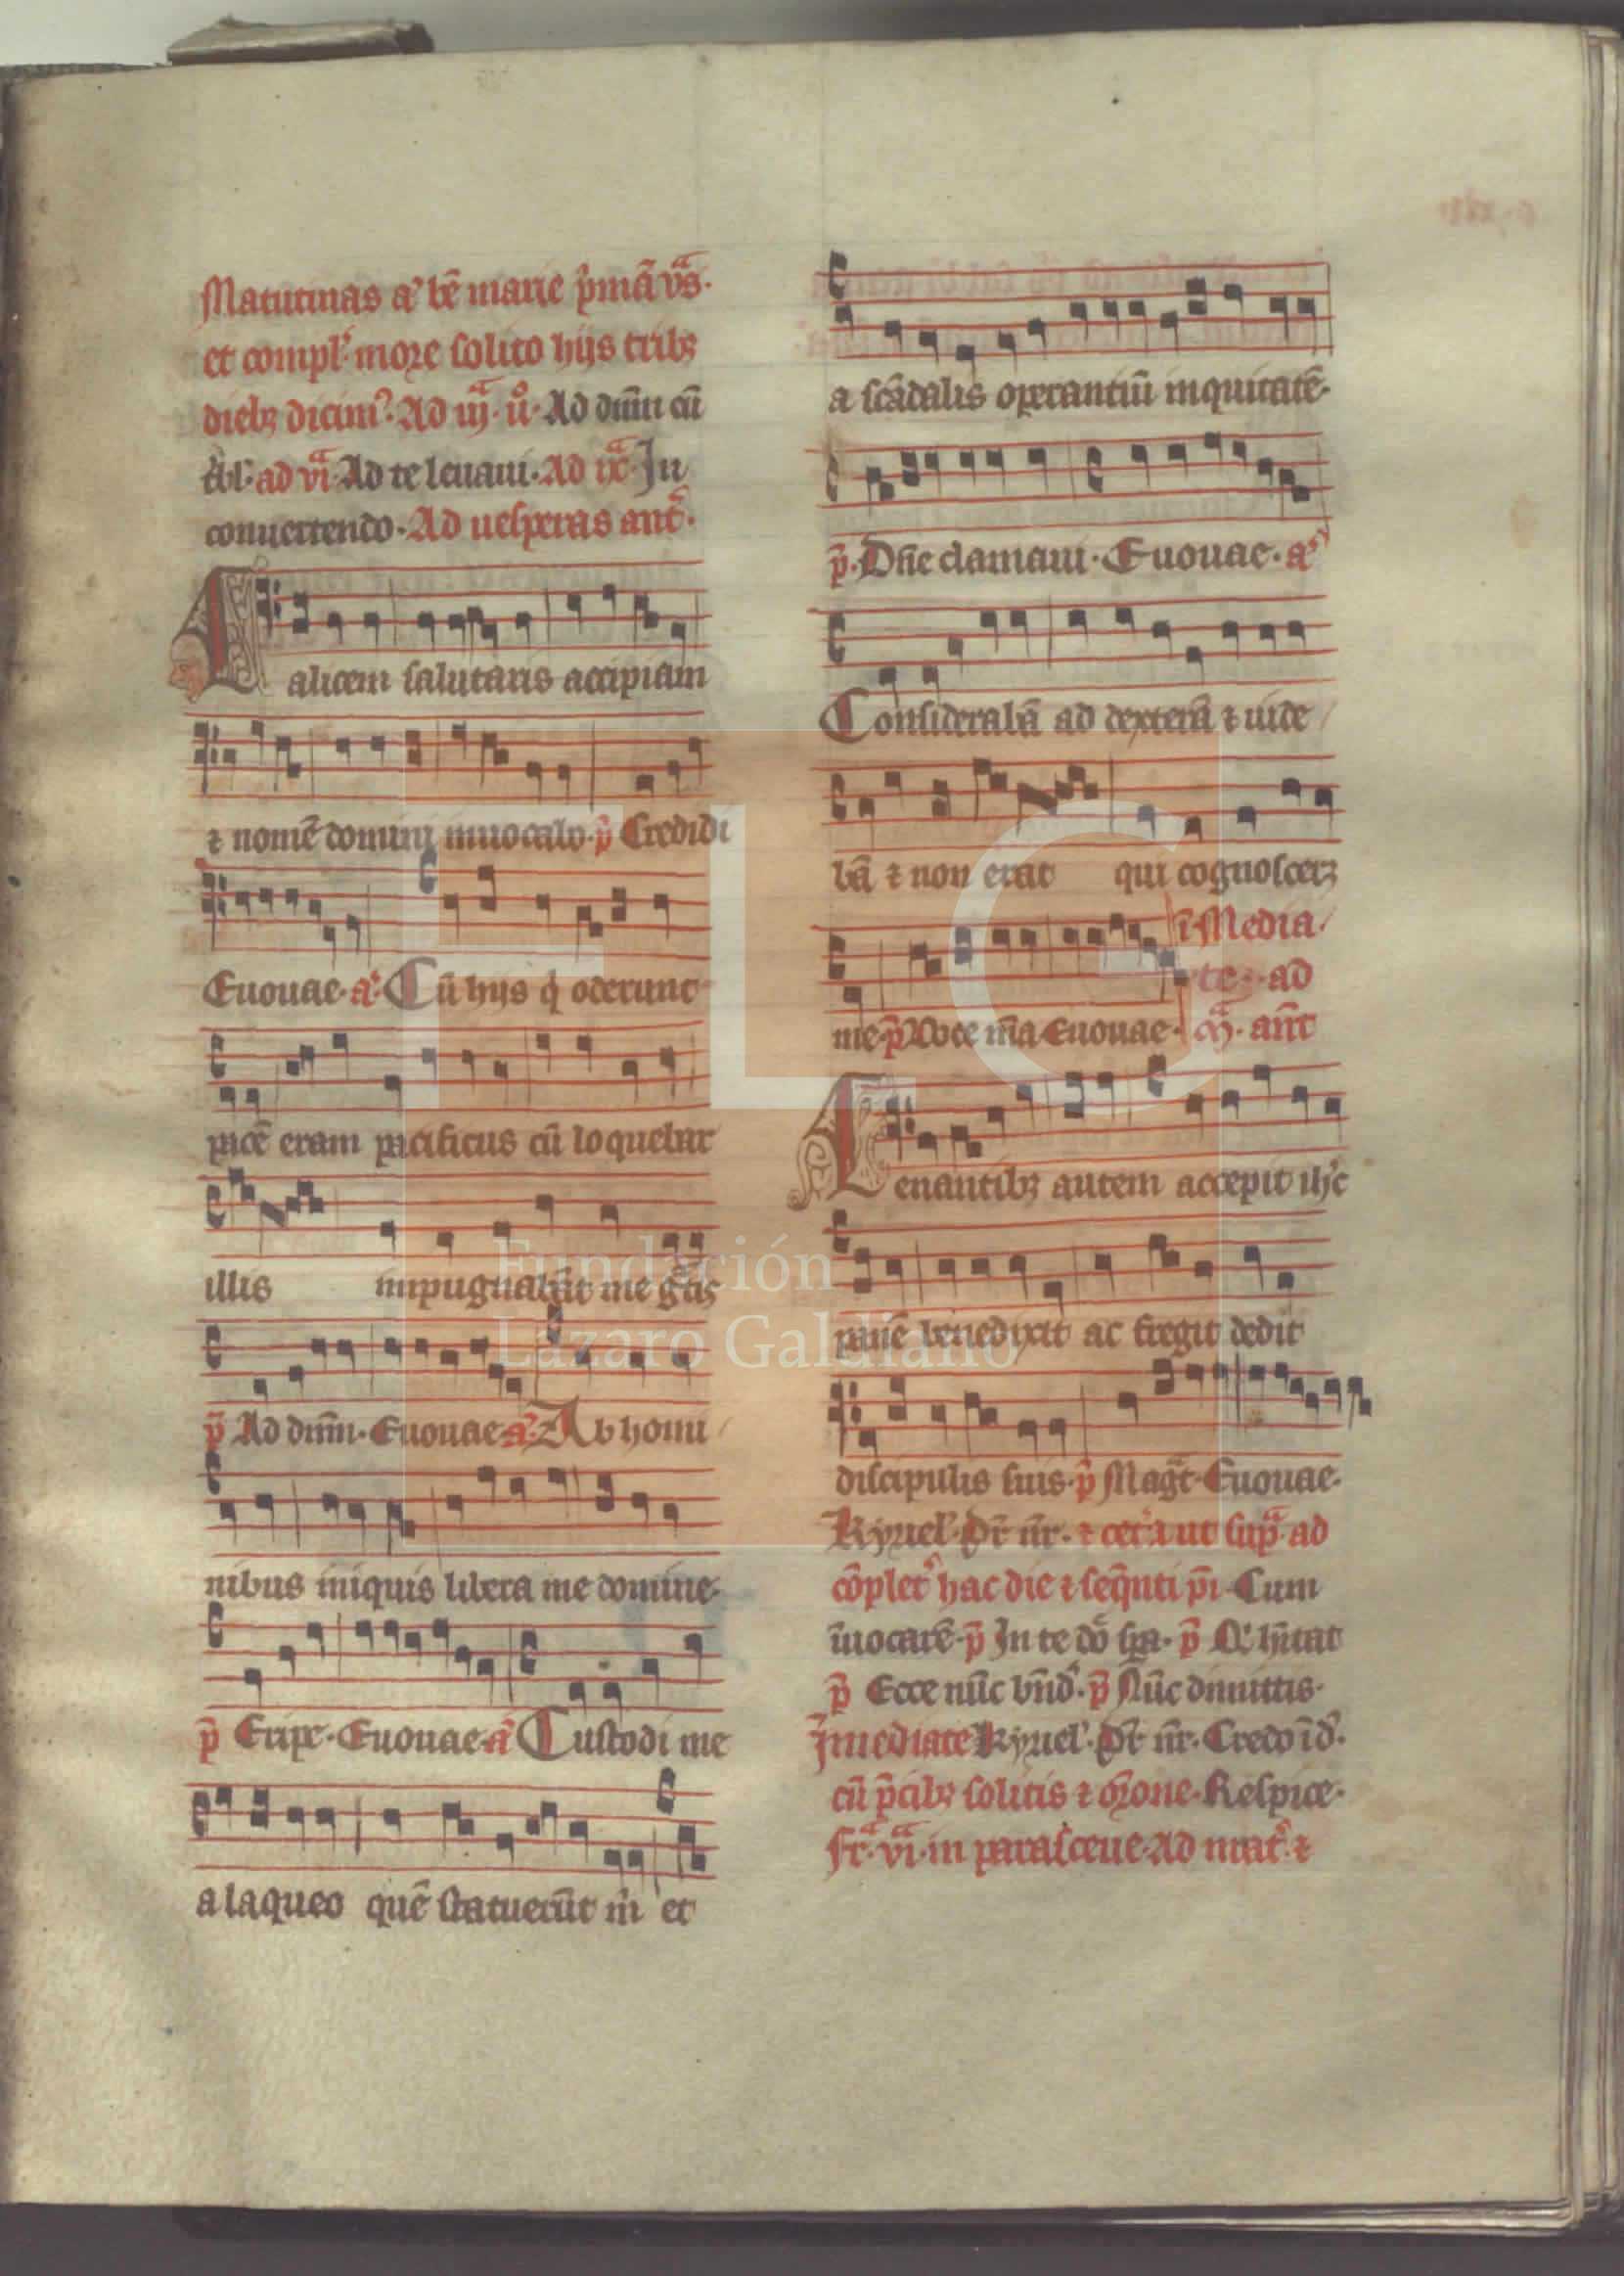 Matutinas a' bē marie p̄mā ūs.
et compl' more solito hijs tribꝫ
diebꝫ dicim'. Ad iijᵃ. u°. Ad dn̄m cū
ad viᵃ. Ad te leuaui. Ad ixᵃ. In
conuertendo. Ad uesperas ant'.
Calicem salutaris accipiam
⁊ nomē domini inuocabo. p̄ Credidi
Euouae. a'. Cū hijs q' oderunt
pacē eram pacificus cū loquebar
illis impugnabāt me gͣtis
p̄ Ad dn̄m. Euouae. a'. Ab homi
nibus iniquis libera me domine.
p̄ Eripe. Euouae. a' Custodi me
a laqueo quē statuerūt m' et
a scādalis operantiū iniquitatē.
p̄. Dn̄e clamaui. Euouae. a'
Considerabā ad dexterā ⁊ uide
bā ⁊ non erat qui cognosceꝫ
me. p̄ Uoce m̄a Euouae.
ī Media
te. ad
m̄ᵃ. ant̄
Cenantibꝫ autem accepit ih'c
panē benedixit ac fregit dedit
discipulis suis. p̄ Magͣt. Euouae.
Kyriel'. Pr̄ nr̄. ⁊ cet'a ut supͣ. ad
cōplet' hac die ⁊ seq̄nti p̄i. Cum
īuocarē. p̄ In te dō spa. p̄ Q' hītat
p̄ Ecce nūc bn̄d'. p̄ Nūc dimittis.
Īmediate Kyriel'. Pr̄ nr̄. Credo ī d'.
cū p̄cibꝫ solitis ⁊ orōne. Respice.
Fr̄ᵃ. viᵃ. in parasceue. Ad mat'. ⁊
Fundación
Lázaro Galdiano
FLG